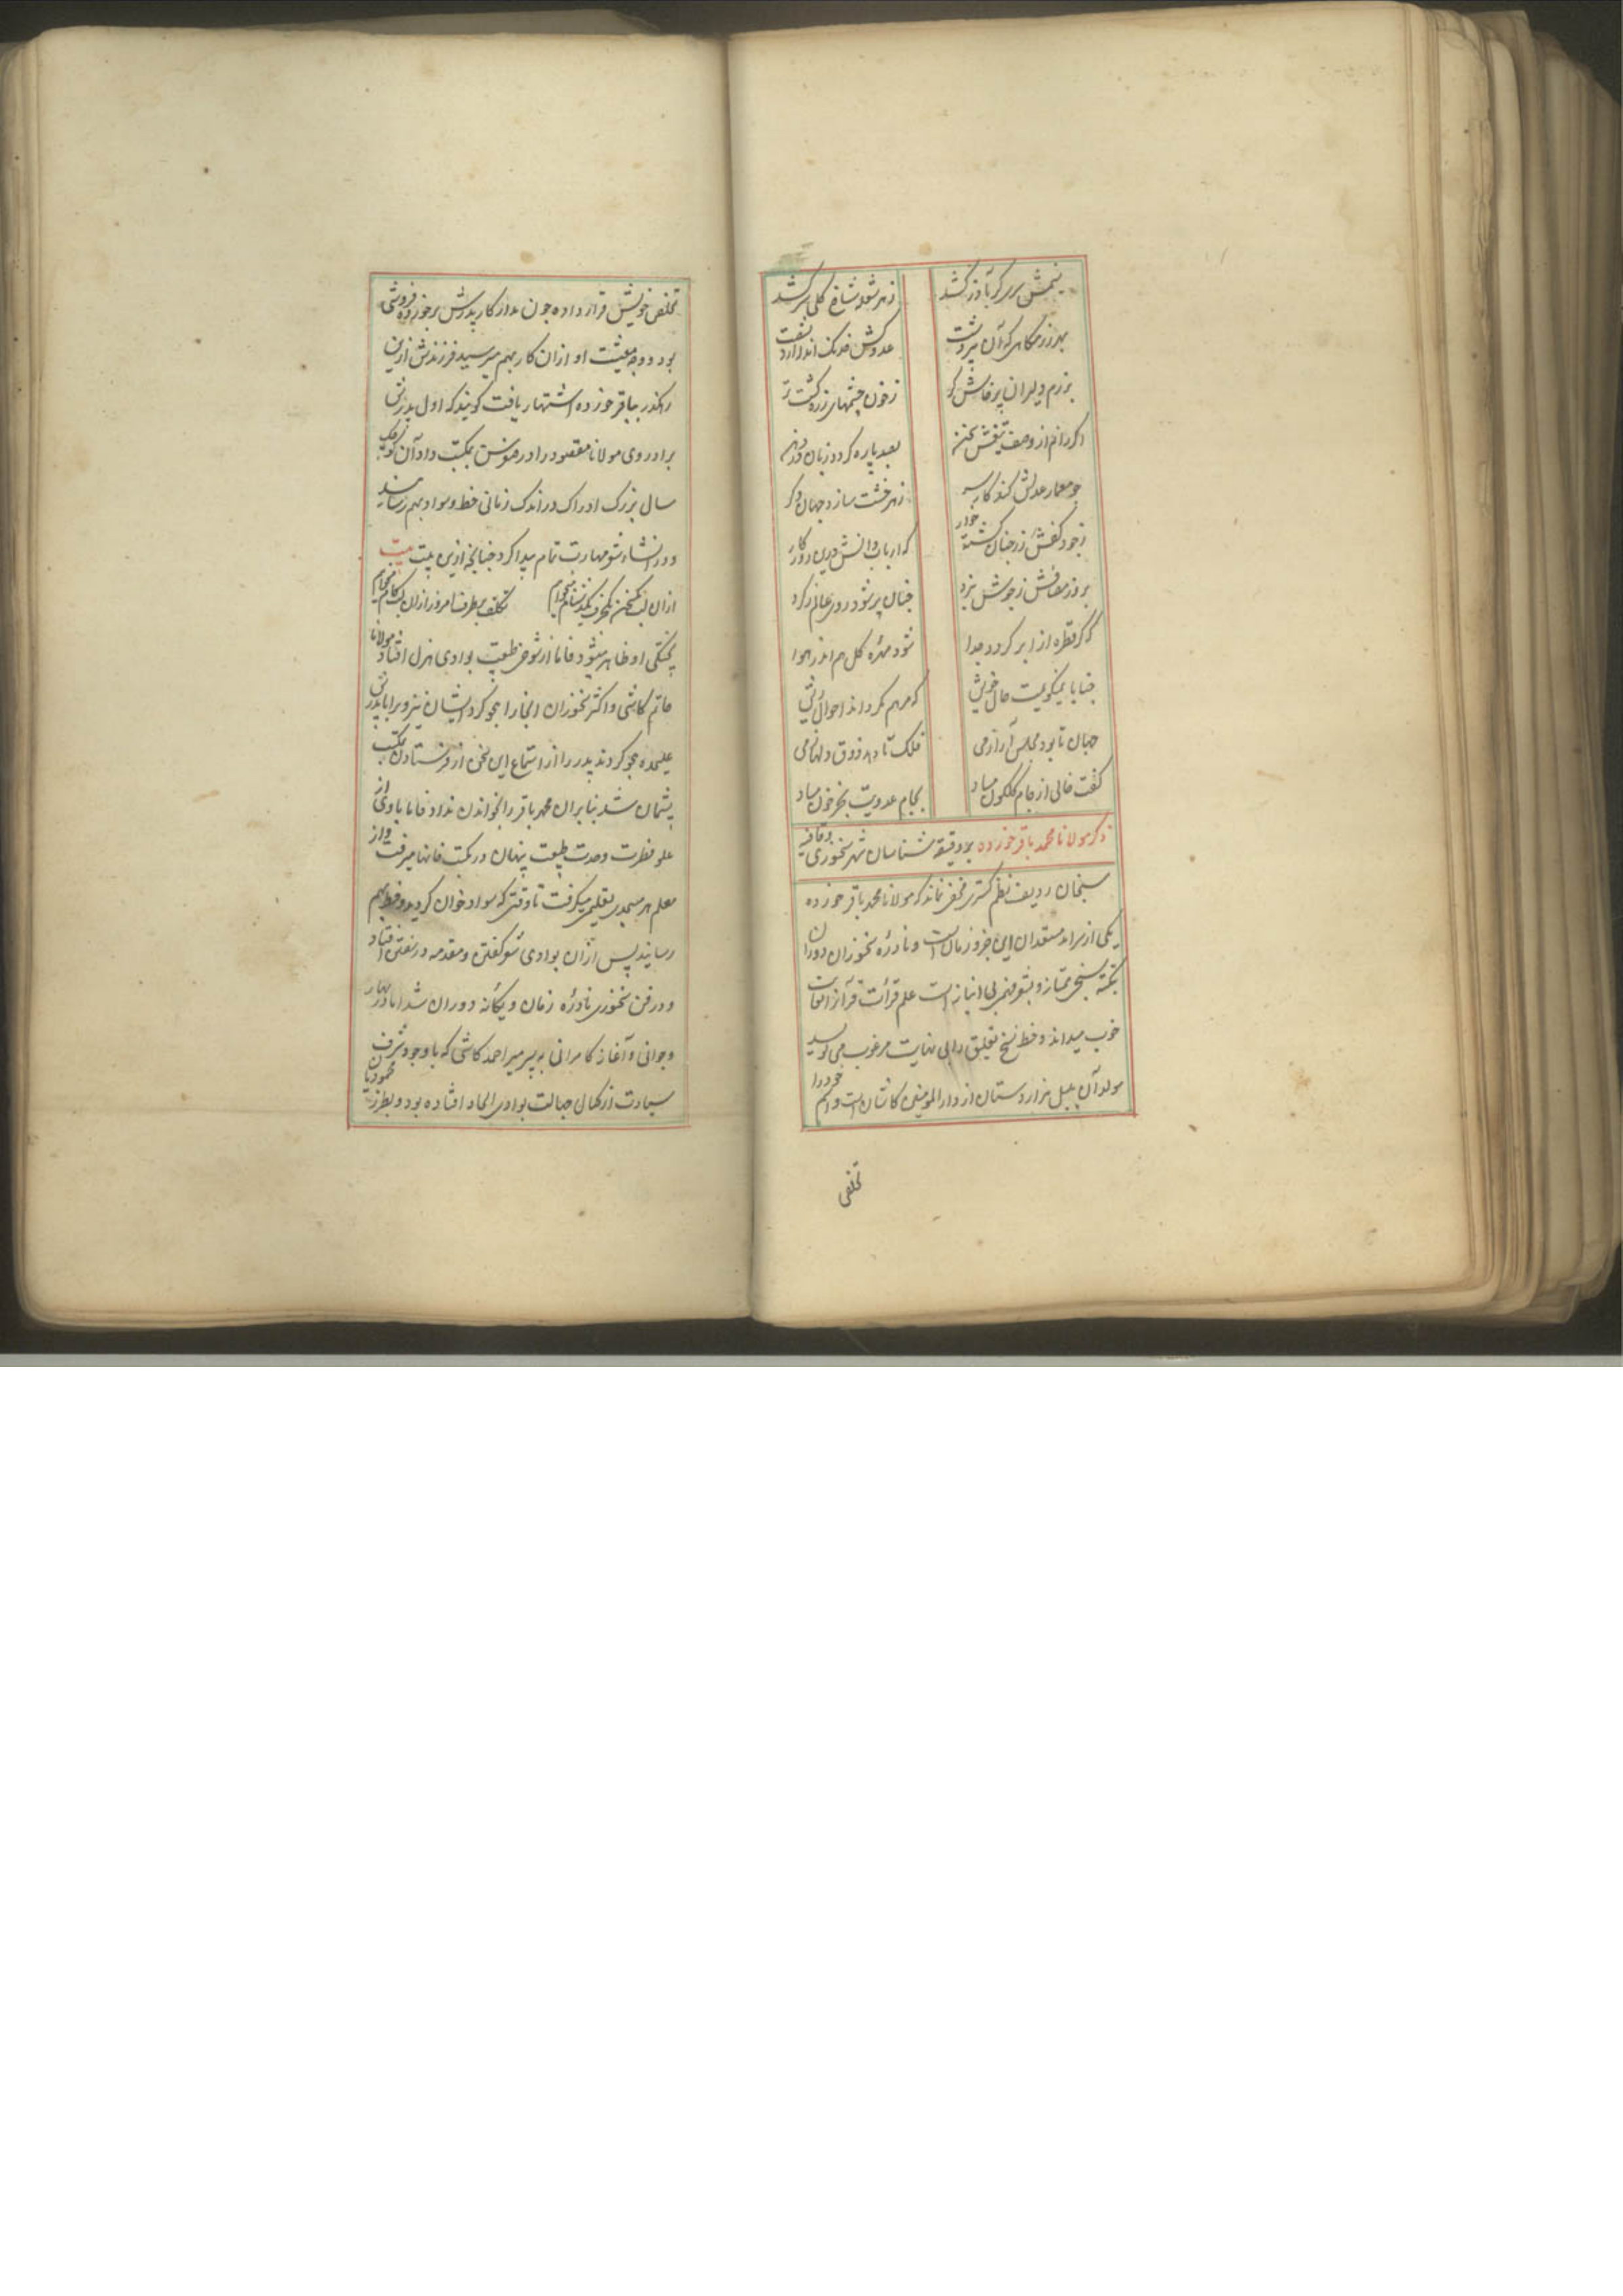 نیمش سری کر آواز کشد زهر شعله شاخ گلی سر کشد
بهر رزمگاهی که آن پیر دشت عدوش خدنگ اندر آرد بشست
برزم دلیران پرخاش کر ز خون چشمهای زره گشت تر
اگر رانم از وصف تیغش سخن بصد پاره گردد زبان در دهن
چو معمار عدلش کند کار سر زهر خشت سازد جهان دگر
ز جود کفش زر چنان گشته خوار که ارباب دانش درین روزگار
بروز مصافش ز جوشن نبرد چنان پر شود روی عالم ز گرد
که گر قطره از ابر گردد جدا شود مهره گل هم اندر هوا
جنابا نمیگویمت حال خویش که مرهم نگرداند احوال ریش
جهان تا بود مجلس آرای می فلک تا دهد ذوق دلهای می
کفت خالی از جام گلگون مباد بجام عدویت بجز خون مباد
ذکر مولانا محمد باقر خورده بر دقیقه شناسان شهر سخنوری و قافیه
سنجان ردیف نظم گستری مخفی نماند که مولانا محمد باقر خورده
یکی از سرآمد مستعدان این جزو زمانست و نادره سخنوران دوران
بنکته سنجی ممتاز و بشعر فهمی بی انباز است علم قرائت قرآن را بغایت
خوب میداند و خط نسخ تعلیق را بی نهایت مرغوب می نویسد
مولد آن بلبل هزار دستان از دار المومنین کاشان است و اسم خود را
تخلص
تخلص خویش قرار داده چون مدار کار پدرش بر خورده فروشی
بود و وجه معیشت او ازان کار بهم میرسید فرزندش ازین
رهگذر بباقر خورده اشتهار یافت گویند که اول پدرش
برادر وی مولانا مقصود را در صغر سن بمکتب داد آن کوچک
سال بزرگ ادراک در اندک زمانی خط و سواد بهم رسانید
و در انشاء شعر مهارت تمام پیدا کرد چنانچه ازین بیت بیت
ازان لب یک سخن تکلف برطرف امروز ازان لب کام میخواهم
پختگی او ظاهر میشود فاما از شوخی طبیعت بوادی هزل افتاد مولانا
حاتم کاشی و اکثر سخنوران آنجا را هجو کرد ایشان نیز ویرا با پدرش
علیحده هجو کردند پدر را از استماع این سخن از فرستادن مکتب
پشیمان شد بنا بران محمد باقر را بخواندن نداد فاما باوی از
علو فطرت و حدت طبیعت پنهان در مکتب خانها میرفت و از
معلم هر مسجدی تعلیمی میگرفت تا وقتی که سواد خوان گردید و خط بهم
رسانید پس ازان بوادی شعر گفتن و مقدمه در سفتن افتاد
و در فن سخنوری نادره زمان و یگانه دوران شد اما در بهار
جوانی و آغاز کامرانی به پیر میر احمد کاشی که باوجود شرف
سیادت از کمال جهالت بوادی الحاد افتاده بود و بطرز محمودیان